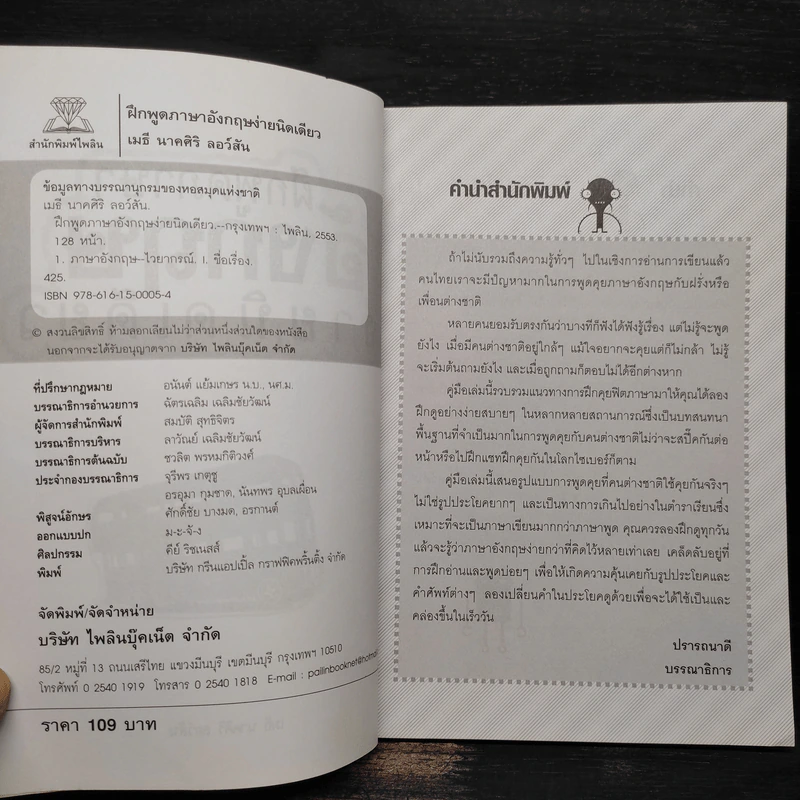 สำนักพิมพ์ไพลิน
ฝึกพูดภาษาอังกฤษง่ายนิดเดียว
เมธี นาคศิริ ลอว์สัน
ข้อมูลทางบรรณานุกรมของหอสมุดแห่งชาติ
เมธี นาคศิริ ลอว์สัน.
ฝึกพูดภาษาอังกฤษง่ายนิดเดียว.--กรุงเทพฯ : ไพลิน, 2553.
128 หน้า.
1. ภาษาอังกฤษ--ไวยากรณ์. I. ชื่อเรื่อง.
425.
ISBN 978-616-15-0005-4
© สงวนลิขสิทธิ์ ห้ามลอกเลียนไม่ว่าส่วนหนึ่งส่วนใดของหนังสือ
นอกจากจะได้รับอนุญาตจาก บริษัท ไพลินบุ๊คเน็ต จำกัด
ที่ปรึกษากฎหมาย อนันต์ แย้มเกษร น.บ., นศ.ม.
บรรณาธิการอำนวยการ ฉัตรเฉลิม เฉลิมชัยวัฒน์
ผู้จัดการสำนักพิมพ์ สมบัติ สุทธิจิตร
บรรณาธิการบริหาร ลาวัณย์ เฉลิมชัยวัฒน์
บรรณาธิการต้นฉบับ ชวลิต พรหมกิติวงศ์
ประจำกองบรรณาธิการ จุรีพร เกตุชู
อรอุมา กุมชาด, นันทพร อุบลเผื่อน
พิสูจน์อักษร ศักดิ์ชัย บางมด, อรกานต์
ออกแบบปก ม-ะ-จั-ง
ศิลปกรรม คีย์ ริชเนสส์
พิมพ์ บริษัท กรีนแอปเปิ้ล กราฟฟิคพริ้นติ้ง จำกัด
จัดพิมพ์/จัดจำหน่าย
บริษัท ไพลินบุ๊คเน็ต จำกัด
85/2 หมู่ที่ 13 ถนนเสรีไทย แขวงมีนบุรี เขตมีนบุรี กรุงเทพฯ 10510
โทรศัพท์ 0 2540 1919 โทรสาร 0 2540 1818 E-mail : pailinbooknet@hotma
ราคา 109 บาท
คำนำสำนักพิมพ์
ถ้าไม่นับรวมถึงความรู้ทั่วๆ ไปในเชิงการอ่านการเขียนแล้ว
คนไทยเราจะมีปัญหามากในการพูดคุยภาษาอังกฤษกับฝรั่งหรือ
เพื่อนต่างชาติ
หลายคนยอมรับตรงกันว่าบางทีก็ฟังได้ฟังรู้เรื่อง แต่ไม่รู้จะพูด
ยังไง เมื่อมีคนต่างชาติอยู่ใกล้ๆ แม้ใจอยากจะคุยแต่ก็ไม่กล้า ไม่รู้
จะเริ่มต้นถามยังไง และเมื่อถูกถามก็ตอบไม่ได้อีกต่างหาก
คู่มือเล่มนี้รวบรวมแนวทางการฝึกคุยฟิตภาษามาให้คุณได้ลอง
ฝึกดูอย่างง่ายสบายๆ ในหลากหลายสถานการณ์ซึ่งเป็นบทสนทนา
พื้นฐานที่จำเป็นมากในการพูดคุยกับคนต่างชาติไม่ว่าจะสปี๊คกันต่อ
หน้าหรือไปฝึกแชทฝึกคุยกันในโลกไซเบอร์ก็ตาม
คู่มือเล่มนี้เสนอรูปแบบการพูดคุยที่คนต่างชาติใช้คุยกันจริงๆ
ไม่ใช่รูปประโยคยากๆ และเป็นทางการเกินไปอย่างในตำราเรียนซึ่ง
เหมาะที่จะเป็นภาษาเขียนมากกว่าภาษาพูด คุณควรลองฝึกดูทุกวัน
แล้วจะรู้ว่าภาษาอังกฤษง่ายกว่าที่คิดไว้หลายเท่าเลย เคล็ดลับอยู่ที่
การฝึกอ่านและพูดบ่อยๆ เพื่อให้เกิดความคุ้นเคยกับรูปประโยคและ
คำศัพท์ต่างๆ ลองเปลี่ยนคำในประโยคดูด้วยเพื่อจะได้ใช้เป็นและ
คล่องขึ้นในเร็ววัน
ปรารถนาดี
บรรณาธิการ